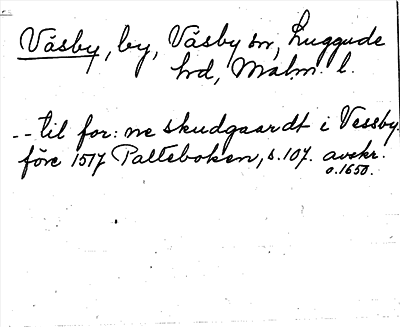 Väsby, by, Väsby sn, Luggude
hd, Malm. l.
-- til for: ne skudgaardt i Vessby.
före 1517 Palteboken, s. 107. avskr.
o. 1650.